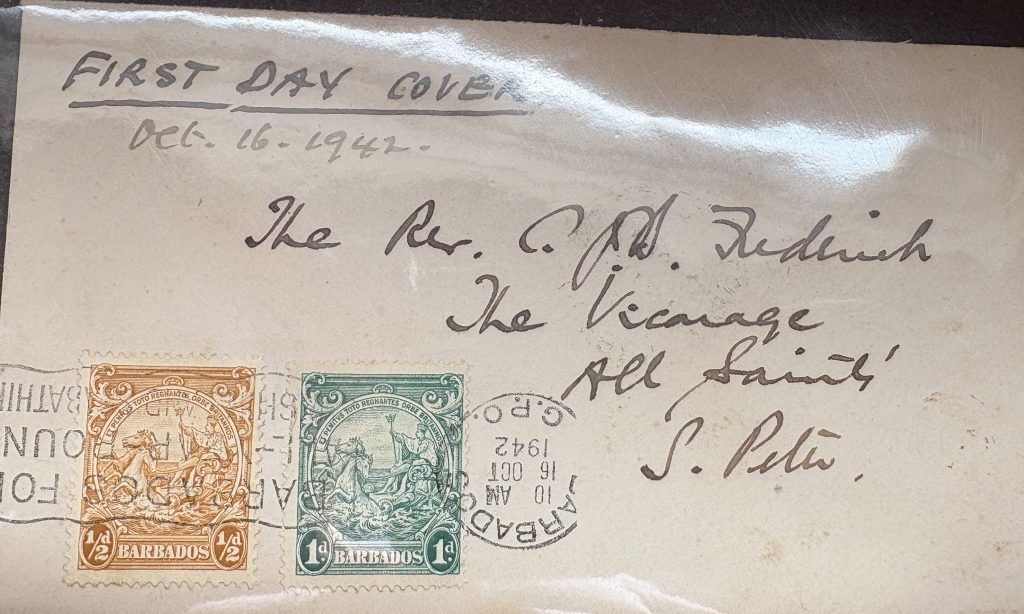 FIRST DAY COVER
Oct. 16. 1942.
The Rev. C. J.D. Frederick
The Vicarage
All Saints'
S. Peter.
ET PENITVS TOTO REGNANTES ORBE BRITANNOS
½d BARBADOS ½d
ET PENITVS TOTO REGNANTES ORBE BRITANNOS
1d BARBADOS 1d.
BARBADOS FO
BATHI
BARBADOS
10 AM
16 OCT
1942
G.P.O.